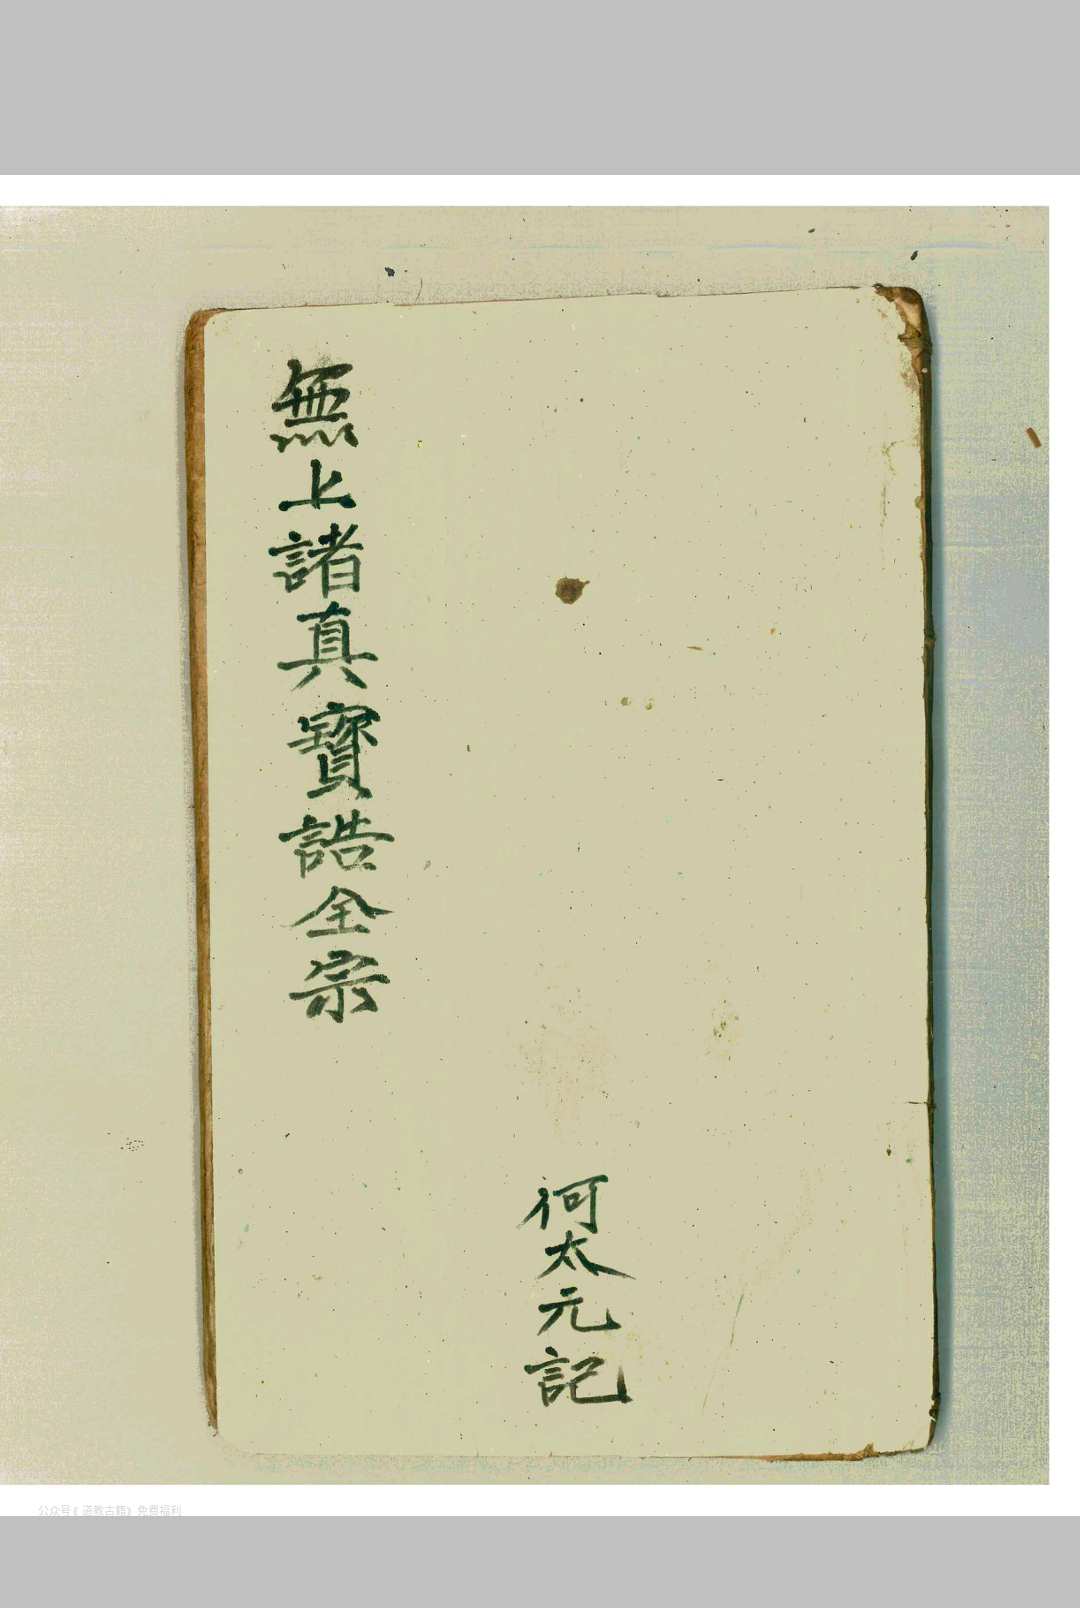 無上諸真寶誥全宗
何太元記
公众号《道教古籍》免費福利